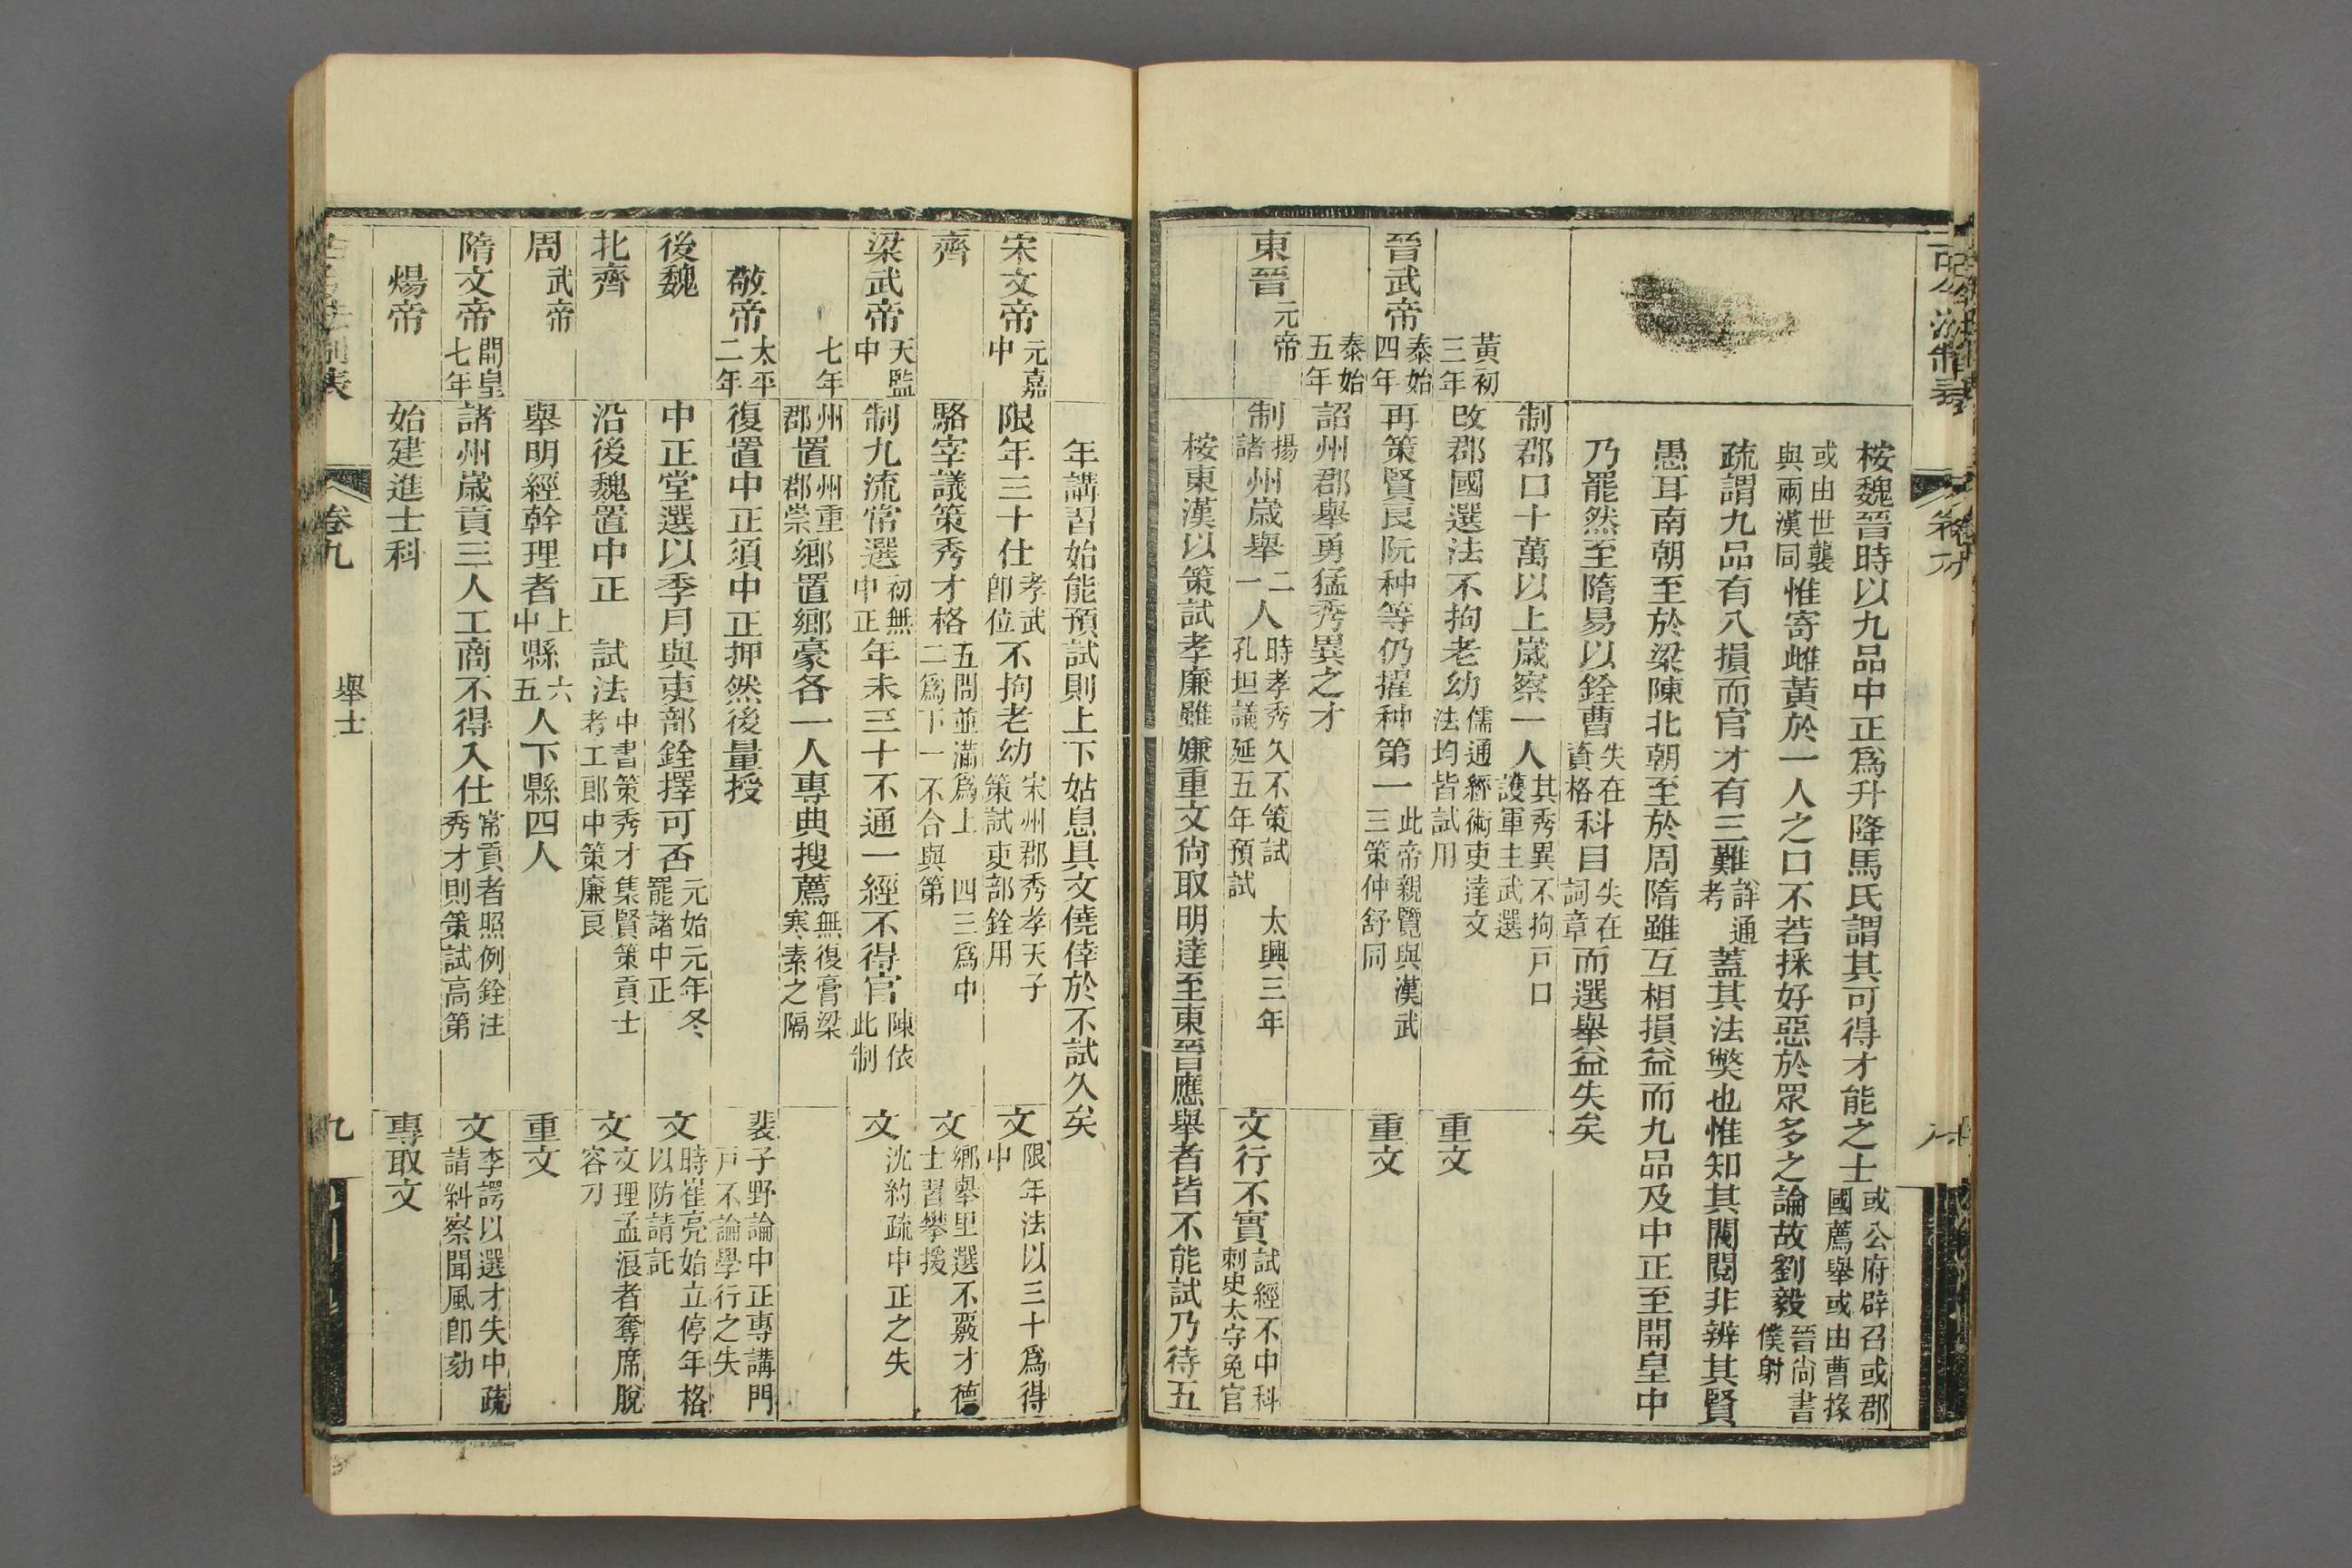 桉魏晉時以九品中正爲升降馬氏謂其可得才能之士或公府辟召或郡國薦舉或由曹掾
或由世襲與兩漢同惟寄雌黃於一人之口不若採好惡於眾多之論故劉毅晉尚書僕射
疏謂九品有八損而官才有三難詳通考蓋其法獘也惟知其閥閱非辨其賢
愚耳南朝至於梁陳北朝至於周隋雖互相損益而九品及中正至開皇中
乃罷然至隋易以銓曹失在資格科目失在詞章而選舉益失矣
制郡口十萬以上歲察一人其秀異不拘戸口護軍主武選
黃初三年 改郡國選法不拘老幼儒通經術吏達文法均皆試用 重文
晉武帝泰始四年 再策賢良阮种等仍擢种第一此帝親覽與漢武三策仲舒同 重文
泰始五年 詔州郡舉勇猛秀異之才
東晉元帝 制揚諸州歲舉二一人時孝秀久不策試孔坦議延五年預試 太興三年 文行不實試經不中科刺史太守免官
桉東漢以策試孝廉雖嫌重文尙取明達至東晉應舉者皆不能試乃待五
年講習始能預試則上下姑息具文僥倖於不試久矣
宋文帝元嘉中 限年三十仕孝武卽位不拘老幼宋州郡秀孝天子策試吏部銓用 文限年法以三十爲得中
齊 駱宰議策秀才格五問並滿爲上四三爲中二爲下一不合與第 文鄉舉里選不覈才德士習攀援
梁武帝天監中 制九流常選初無中正年未三十不通一經不得官陳依此制 文沈約疏中正之失
七年 州郡置州重郡崇鄉置鄉豪各一人專典搜薦無復膏粱寒素之隔
敬帝太平二年 復置中正須中正押然後量授 裴子野論中正專講門戸不論學行之失
後魏 中正堂選以季月與吏部銓擇可否元始元年冬罷諸中正 文時崔亮始立停年格以防請託
北齊 沿後魏置中正 試法中書策秀才集賢策貢士考工郎中策廉良 文文理孟浪者奪席脫容刀
周武帝 舉明經幹理者上中縣六五人下縣四人 重文
隋文帝開皇七年 諸州歲貢三人工商不得入仕常貢者照例銓注秀才則策試高第 文李諤以選才失中疏請糾察聞風卽劾
煬帝 始建進士科 專取文
卷九 舉士 九